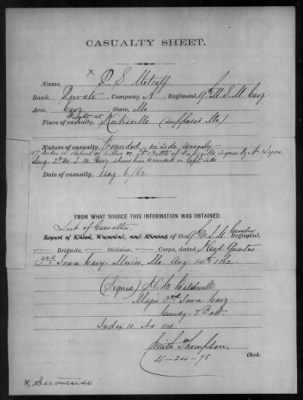 CASUALTY SHEET.
x
Name, P. S. Metcalf
Rank, Private Company A. Regiment, 9" M. S. M. Cavy
Arm, Cavy State, Mo.
Place of casualty, Kirksville (supposed Mo)
Nature of casualty, Wounded, in side severely
wounded in left side
Date of casualty, Aug 6/62
FROM WHAT SOURCE THIS INFORMATION WAS OBTAINED.
List of Casualties
Report of Killed, Wounded, and Missing of the 9" M. S. M. Cavalry Regiment,
Brigade, Division, Corps, dated Head Quarters
3rd Iowa Cavy, Mexico, Mo. Aug. 14th 1862
(Signed) H. C. Caldwell
Major 3rd Iowa Cavy
Comdg
Index 10. No 114
Smith Thompson,
Clerk.
2-24-78
x Secondside